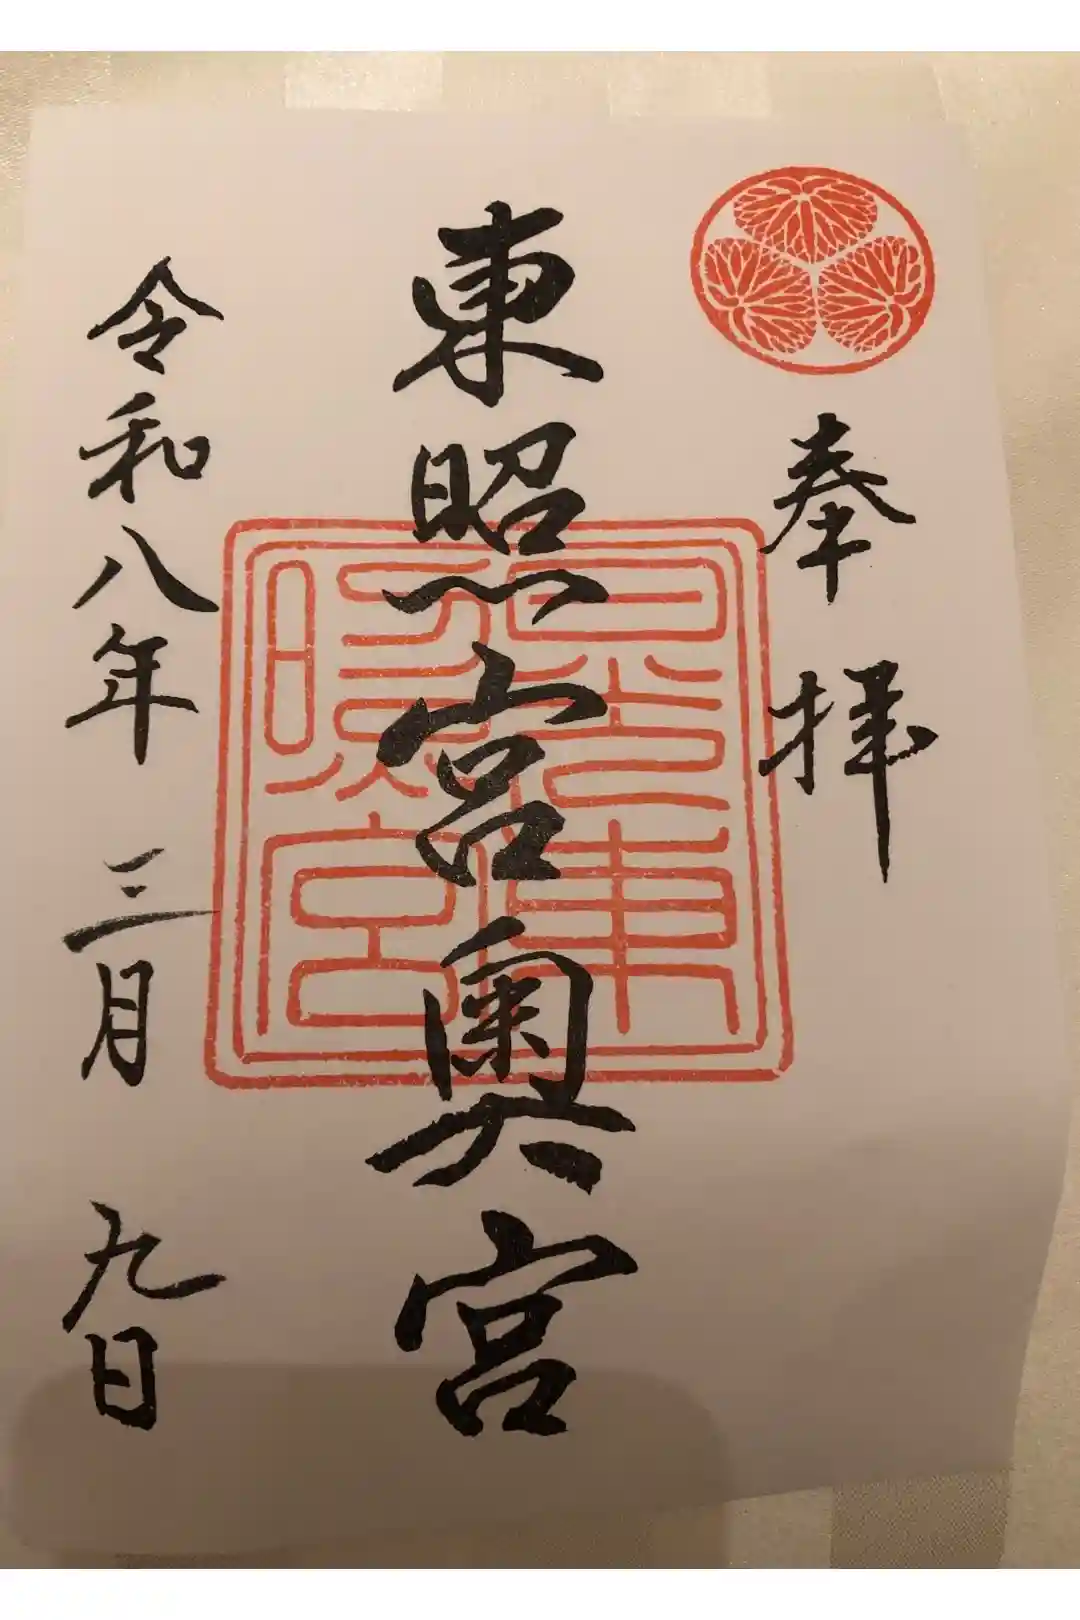 奉拝
東照宮奥宮
令和八年三月九日